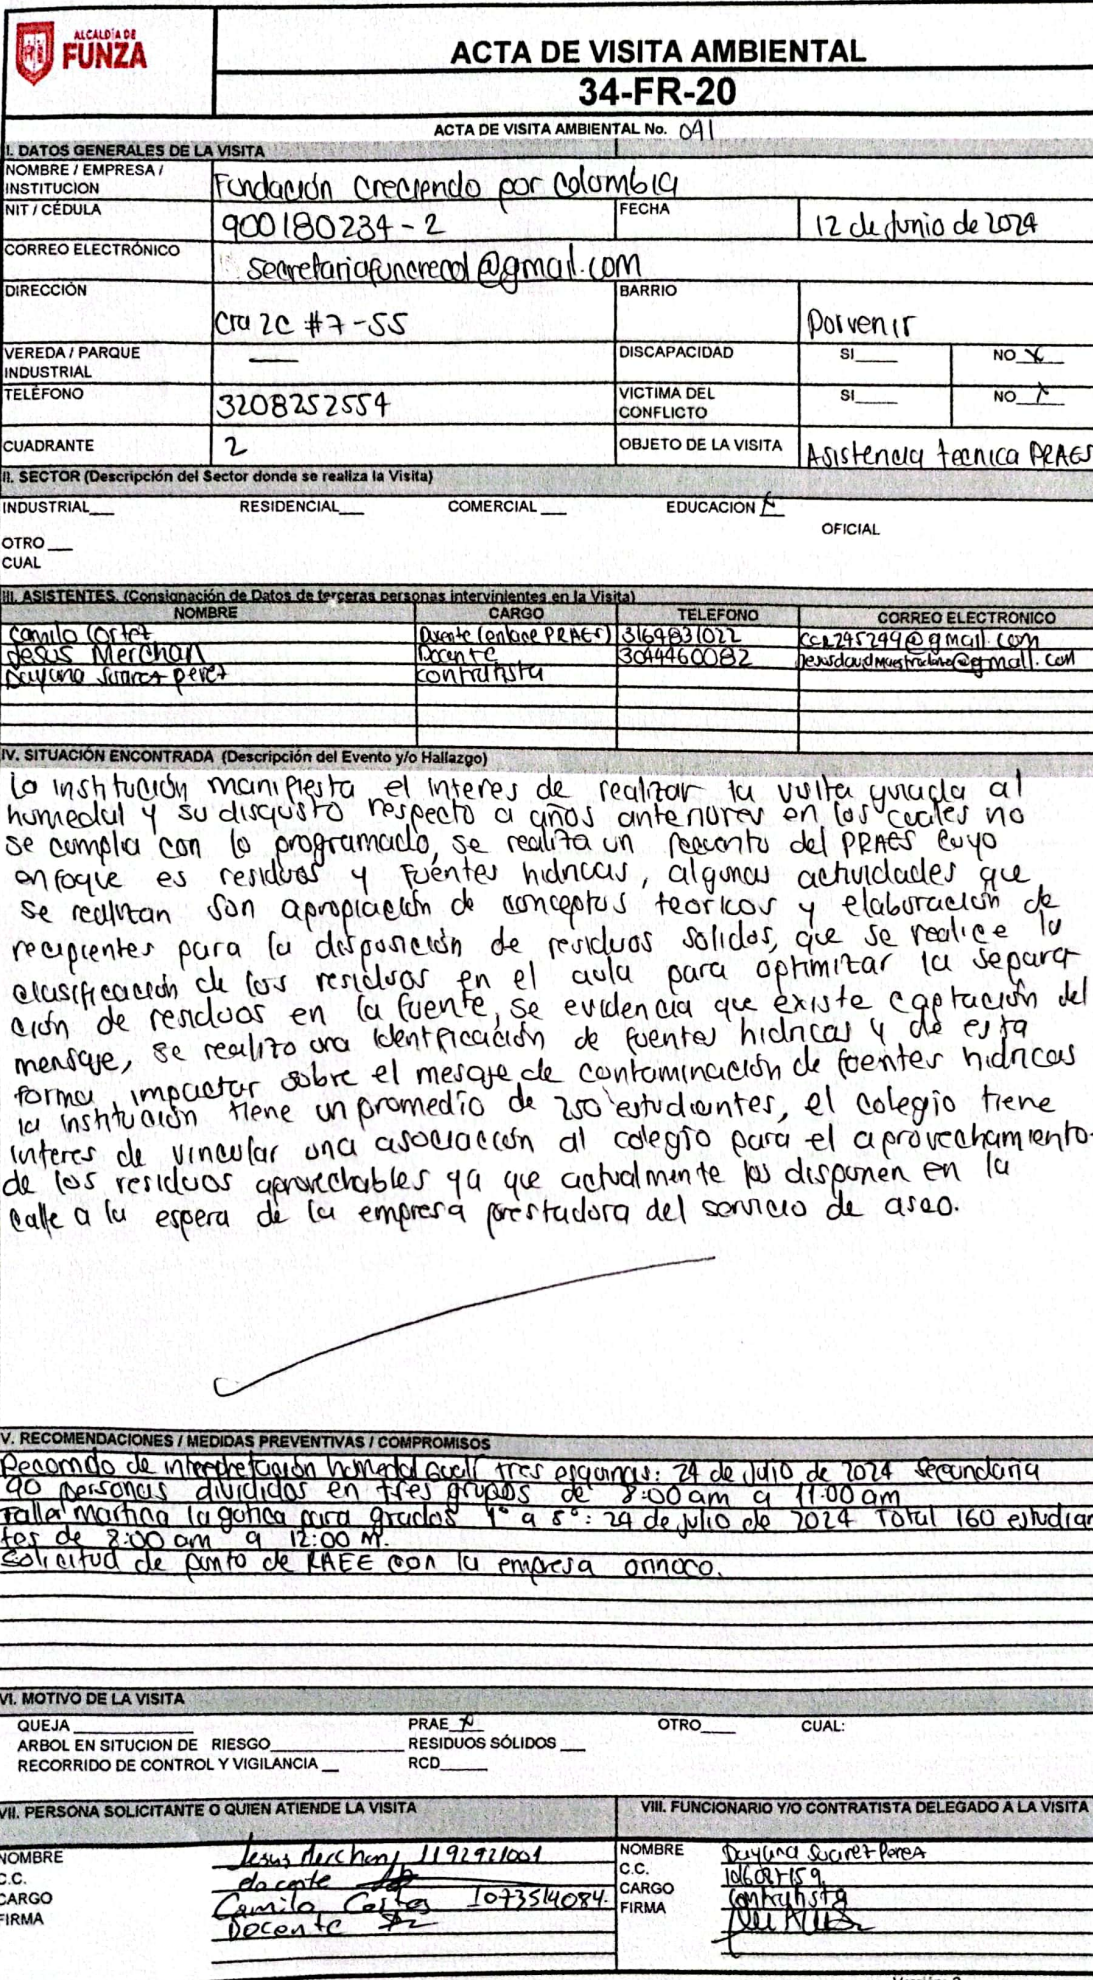 ALCALDÍA DE
FUNZA
ACTA DE VISITA AMBIENTAL
34-FR-20
ACTA DE VISITA AMBIENTAL No. 041
I. DATOS GENERALES DE LA VISITA
NOMBRE / EMPRESA / INSTITUCION Fundación Creciendo por Colombia
NIT / CÉDULA 900180234-2 FECHA 12 de Junio de 2024
CORREO ELECTRÓNICO secretariafuncrecol@gmail.com
DIRECCIÓN Cra 2C #7-55 BARRIO Porvenir
VEREDA / PARQUE INDUSTRIAL — DISCAPACIDAD SI____ NO X
TELÉFONO 3208252554 VICTIMA DEL CONFLICTO SI____ NO X
CUADRANTE 2 OBJETO DE LA VISITA Asistencia tecnica PRAES
II. SECTOR (Descripción del Sector donde se realiza la Visita)
INDUSTRIAL___ RESIDENCIAL___ COMERCIAL ___ EDUCACION X
OFICIAL
OTRO ___
CUAL
III. ASISTENTES. (Consignación de Datos de terceras personas intervinientes en la Visita)
NOMBRE CARGO TELEFONO CORREO ELECTRONICO
Camilo Cortez Docente (enlace PRAES) 3164831022 ccr245299@gmail.com
Jesus Merchan Docente 3044460082 @gmail.com
Dayana Suarez perez contratista
IV. SITUACIÓN ENCONTRADA (Descripción del Evento y/o Hallazgo)
La institución manifiesta el interes de realizar la visita guiada al
humedal y su disgusto respecto a años anteriores en los cuales no
se cumplia con lo programado, se realiza un recuento del PRAES cuyo
enfoque es residuos y fuentes hidricas, algunas actividades que
se realizan son apropiación de conceptos teoricos y elaboración de
recipientes para la disposición de residuos solidos, que se realice la
clasificación de los residuos en el aula para optimizar la separa
ción de residuos en la fuente, se evidencia que existe captación del
mensaje, se realizo una identificación de fuentes hidricas y de esta
forma impactar sobre el mesaje de contaminación de fuentes hidricas
la institución tiene un promedio de 250 estudiantes, el colegio tiene
interes de vincular una asociación al colegio para el aprovechamiento
de los residuos aprovechables ya que actualmente los disponen en la
calle a la espera de la empresa prestadora del servicio de aseo.
V. RECOMENDACIONES / MEDIDAS PREVENTIVAS / COMPROMISOS
Recorrido de interpretación humedal Gualí tres esquinas: 24 de julio de 2024 secundaria
90 personas divididos en tres grupos de 8:00 am a 11:00 am
Taller Martina la gonca para grados 1° a 5°: 24 de julio de 2024 Total 160 estudian
tes de 8:00 am a 12:00 M.
Solicitud de punto de RAEE con la empresa orinoco.
VI. MOTIVO DE LA VISITA
QUEJA ____________ PRAE X OTRO____ CUAL:
ARBOL EN SITUCION DE RIESGO____________ RESIDUOS SÓLIDOS ___
RECORRIDO DE CONTROL Y VIGILANCIA __ RCD_____
VII. PERSONA SOLICITANTE O QUIEN ATIENDE LA VISITA
VIII. FUNCIONARIO Y/O CONTRATISTA DELEGADO A LA VISITA
NOMBRE Jesus Merchan 1192921001
C.C. docente
CARGO Camilo Cortes 1073514084.
FIRMA Docente
NOMBRE Dayana Suarez Perez
C.C.
CARGO Contratista
FIRMA